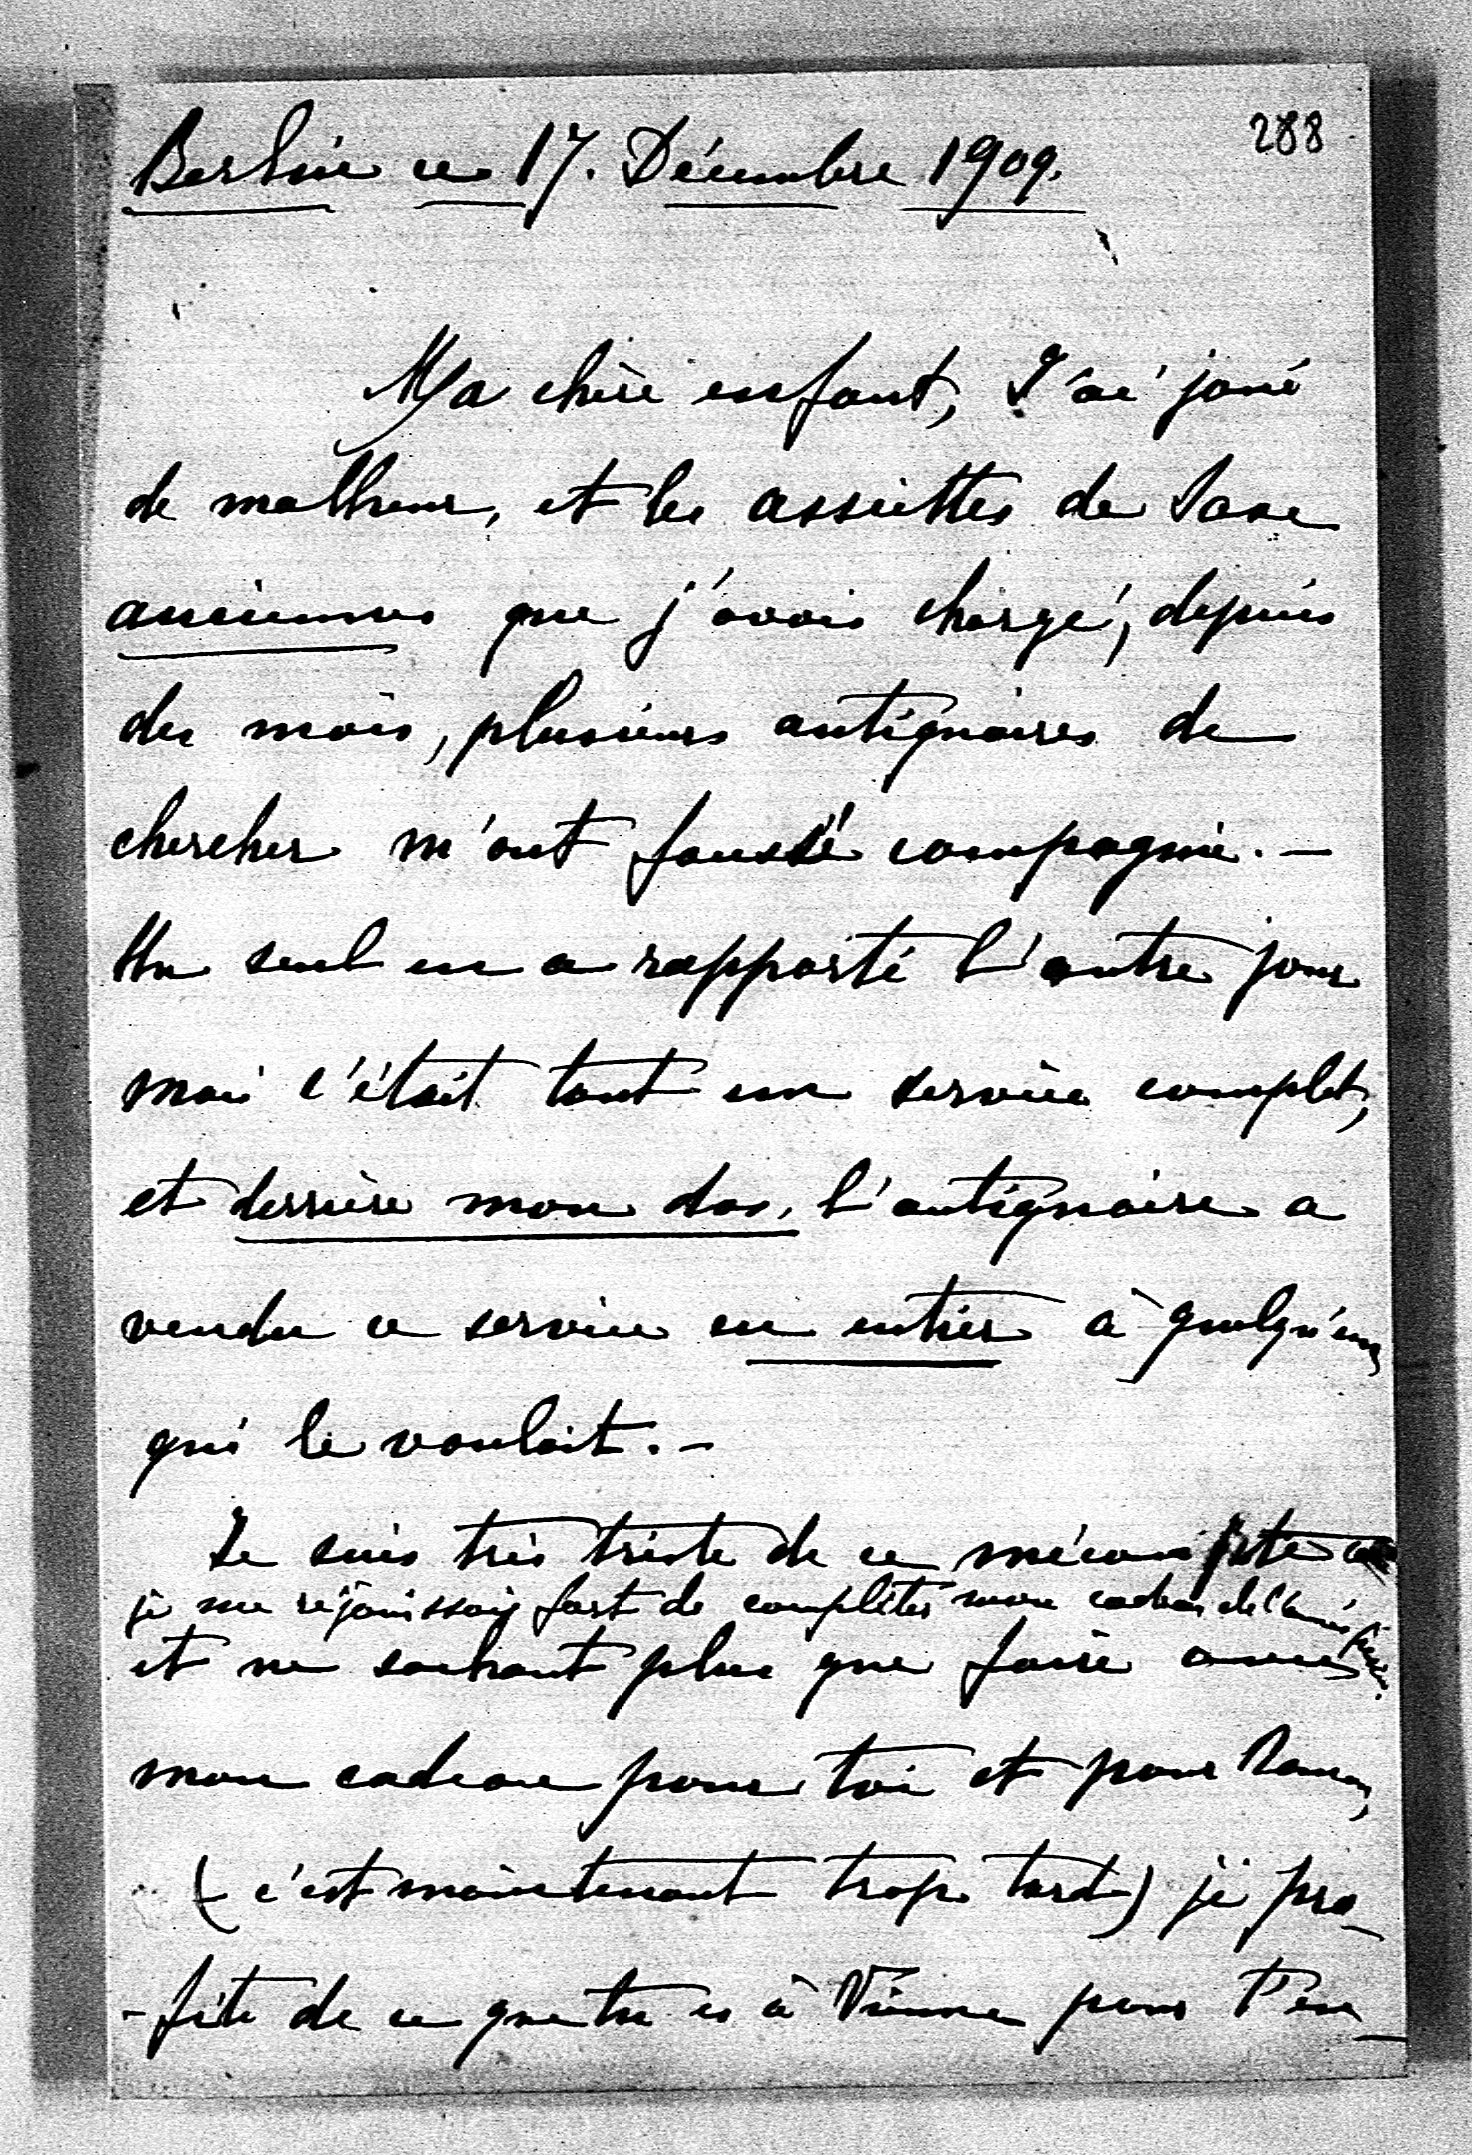 288
Berlin ce 17. Décembre 1909.
Ma chère enfant, J'ai joué
de malheur, et les assiettes de Saxe
anciennes que j'avais chargé, depuis
des mois, plusieurs antiquaires de
chercher m'ont faussé compagnie. —
Un seul en a rapporté l'autre jour
mais c'était tout un service complet,
et derrière mon dos, l'antiquaire a
vendu ce service en entier à quelqu'un
qui le voulait. —
Je suis très triste de ce mécompte
je me réjouissais fort de compléter mon cadeau de l'année
et ne sachant plus que faire avec
mon cadeau pour toi et pour
(c'est maintenant trop tard) je pro-
-fite de ce que tu es à Vienne pour t'en-